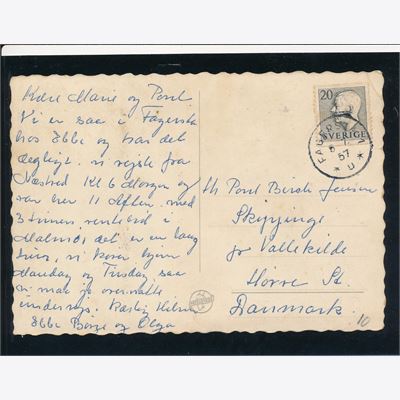 Kære Marie og Povl.
Vi er saa i Fagersta
hos Ebba og har det
dejligt. vi rejste fra
Næstved Kl 6 Morgen og
var her 11 Aften. med
3 Timers ventetid i
Malmø, det er en lang
Tur, vi kører hjem
Mandag og Tirsdag saa
vi maa jo overnatte
undervejs. Kærlig Hilsen
Ebba Børge og Olga
20
SVERIGE
FAGERSTA
57
Hr Povl Birch Jensen
Skippinge
pr Vallekilde
Hørve St.
Danmark.
10